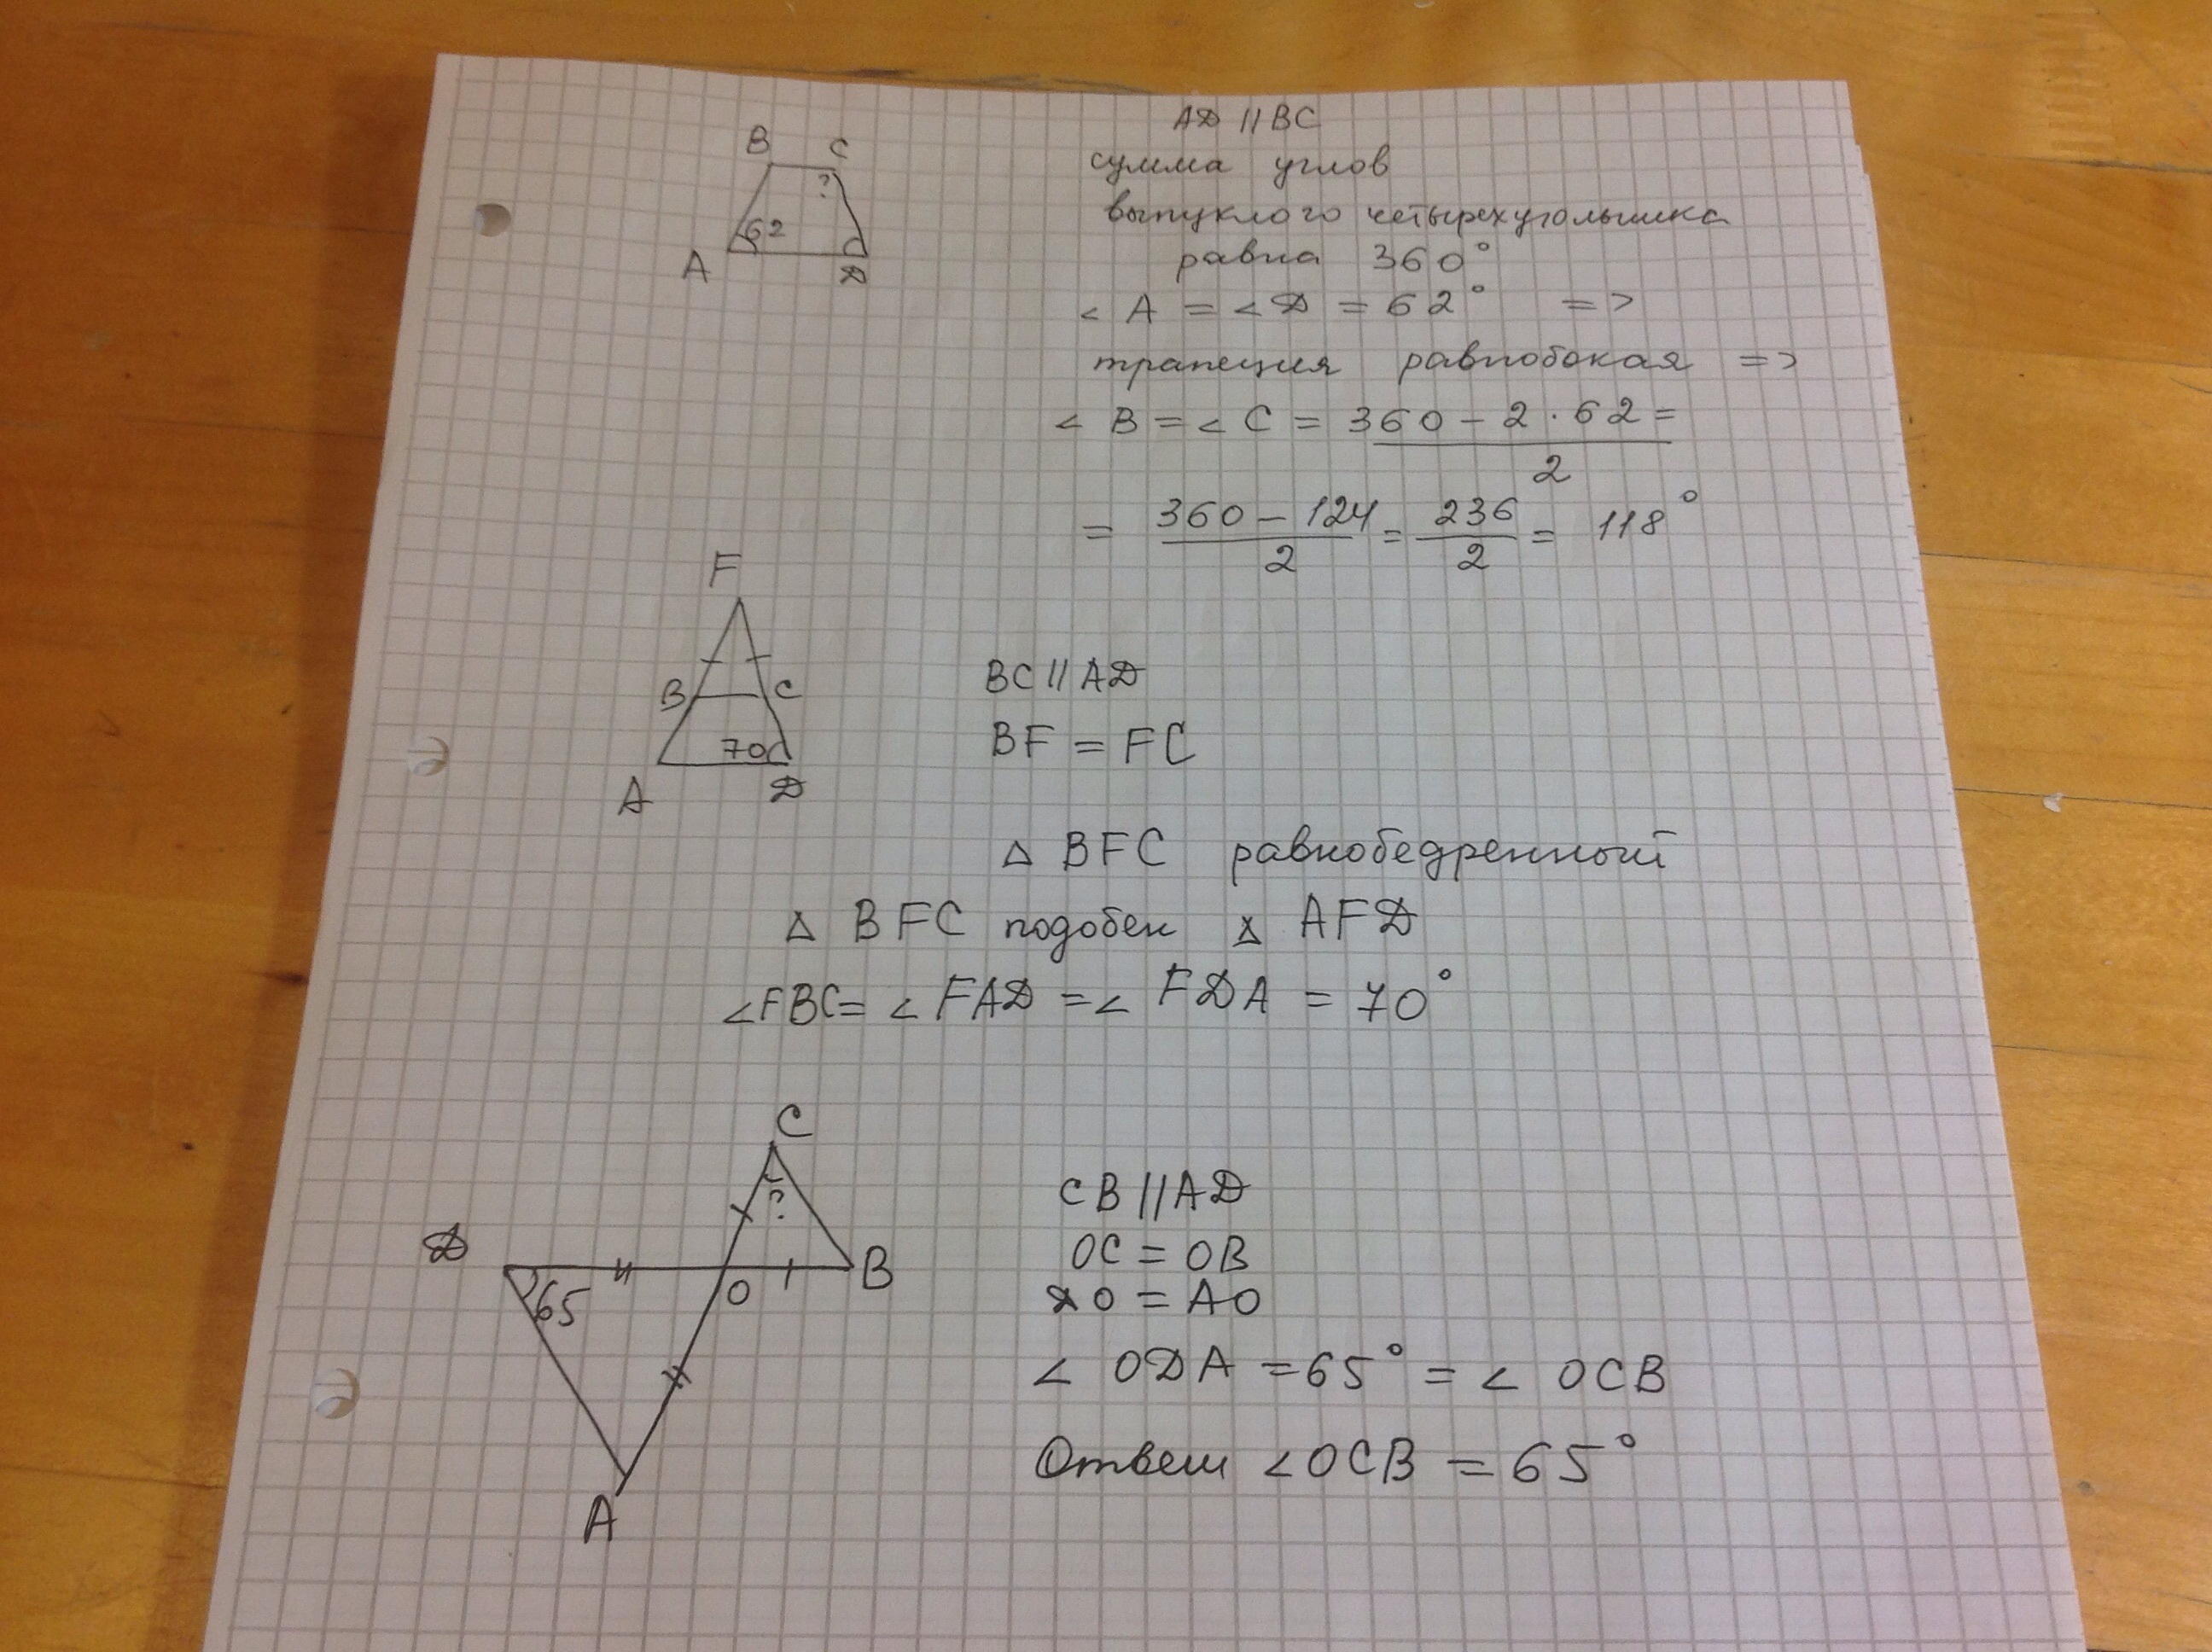 AD || BC
B C
? 
62
A D
сумма углов
выпуклого четырехугольника
равна 360°
∠ A = ∠ D = 62° =>
трапеция равнобокая =>
∠ B = ∠ C = 360 - 2 · 62 =
2
= 360 - 124 / 2 = 236 / 2 = 118°
F
B C
70
A D
BC || AD
BF = FC
△ BFC равнобедренный
△ BFC подобен △ AFD
∠FBC = ∠ FAD = ∠ FDA = 70°
C
?
D O B
65
A
CB || AD
OC = OB
DO = AO
∠ ODA = 65° = ∠ OCB
Ответ ∠OCB = 65°